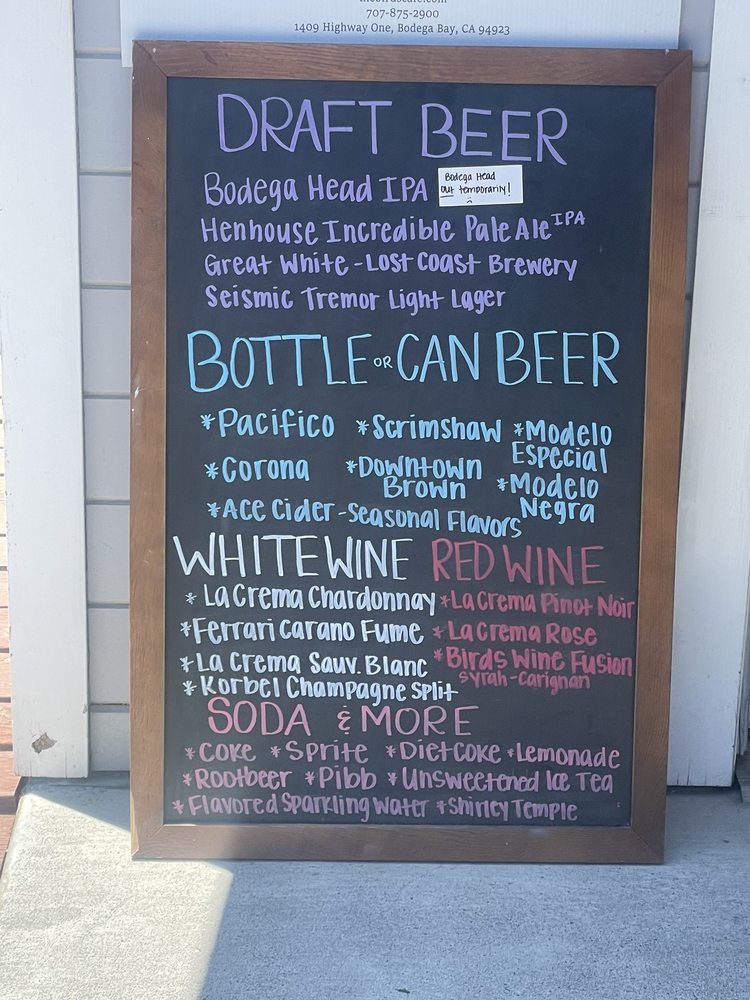 707-875-2900
1409 Highway One, Bodega Bay, CA 94923
DRAFT BEER
Bodega Head IPA
Bodega Head
out temporarily!
Henhouse Incredible Pale Ale IPA
Great White - Lost Coast Brewery
Seismic Tremor Light Lager
BOTTLE OR CAN BEER
*Pacifico *Scrimshaw *Modelo Especial
*Corona *Downtown Brown *Modelo Negra
*Ace Cider - Seasonal Flavors
WHITE WINE
* La Crema Chardonnay
*Ferrari Carano Fume
*La Crema Sauv. Blanc
* Korbel Champagne Split
RED WINE
*La Crema Pinot Noir
* La Crema Rose
*Birds Wine Fusion
Syrah-Carignan
SODA & MORE
*Coke *Sprite *Diet Coke *Lemonade
*Rootbeer *Pibb *Unsweetened Ice Tea
*Flavored Sparkling Water *Shirley Temple